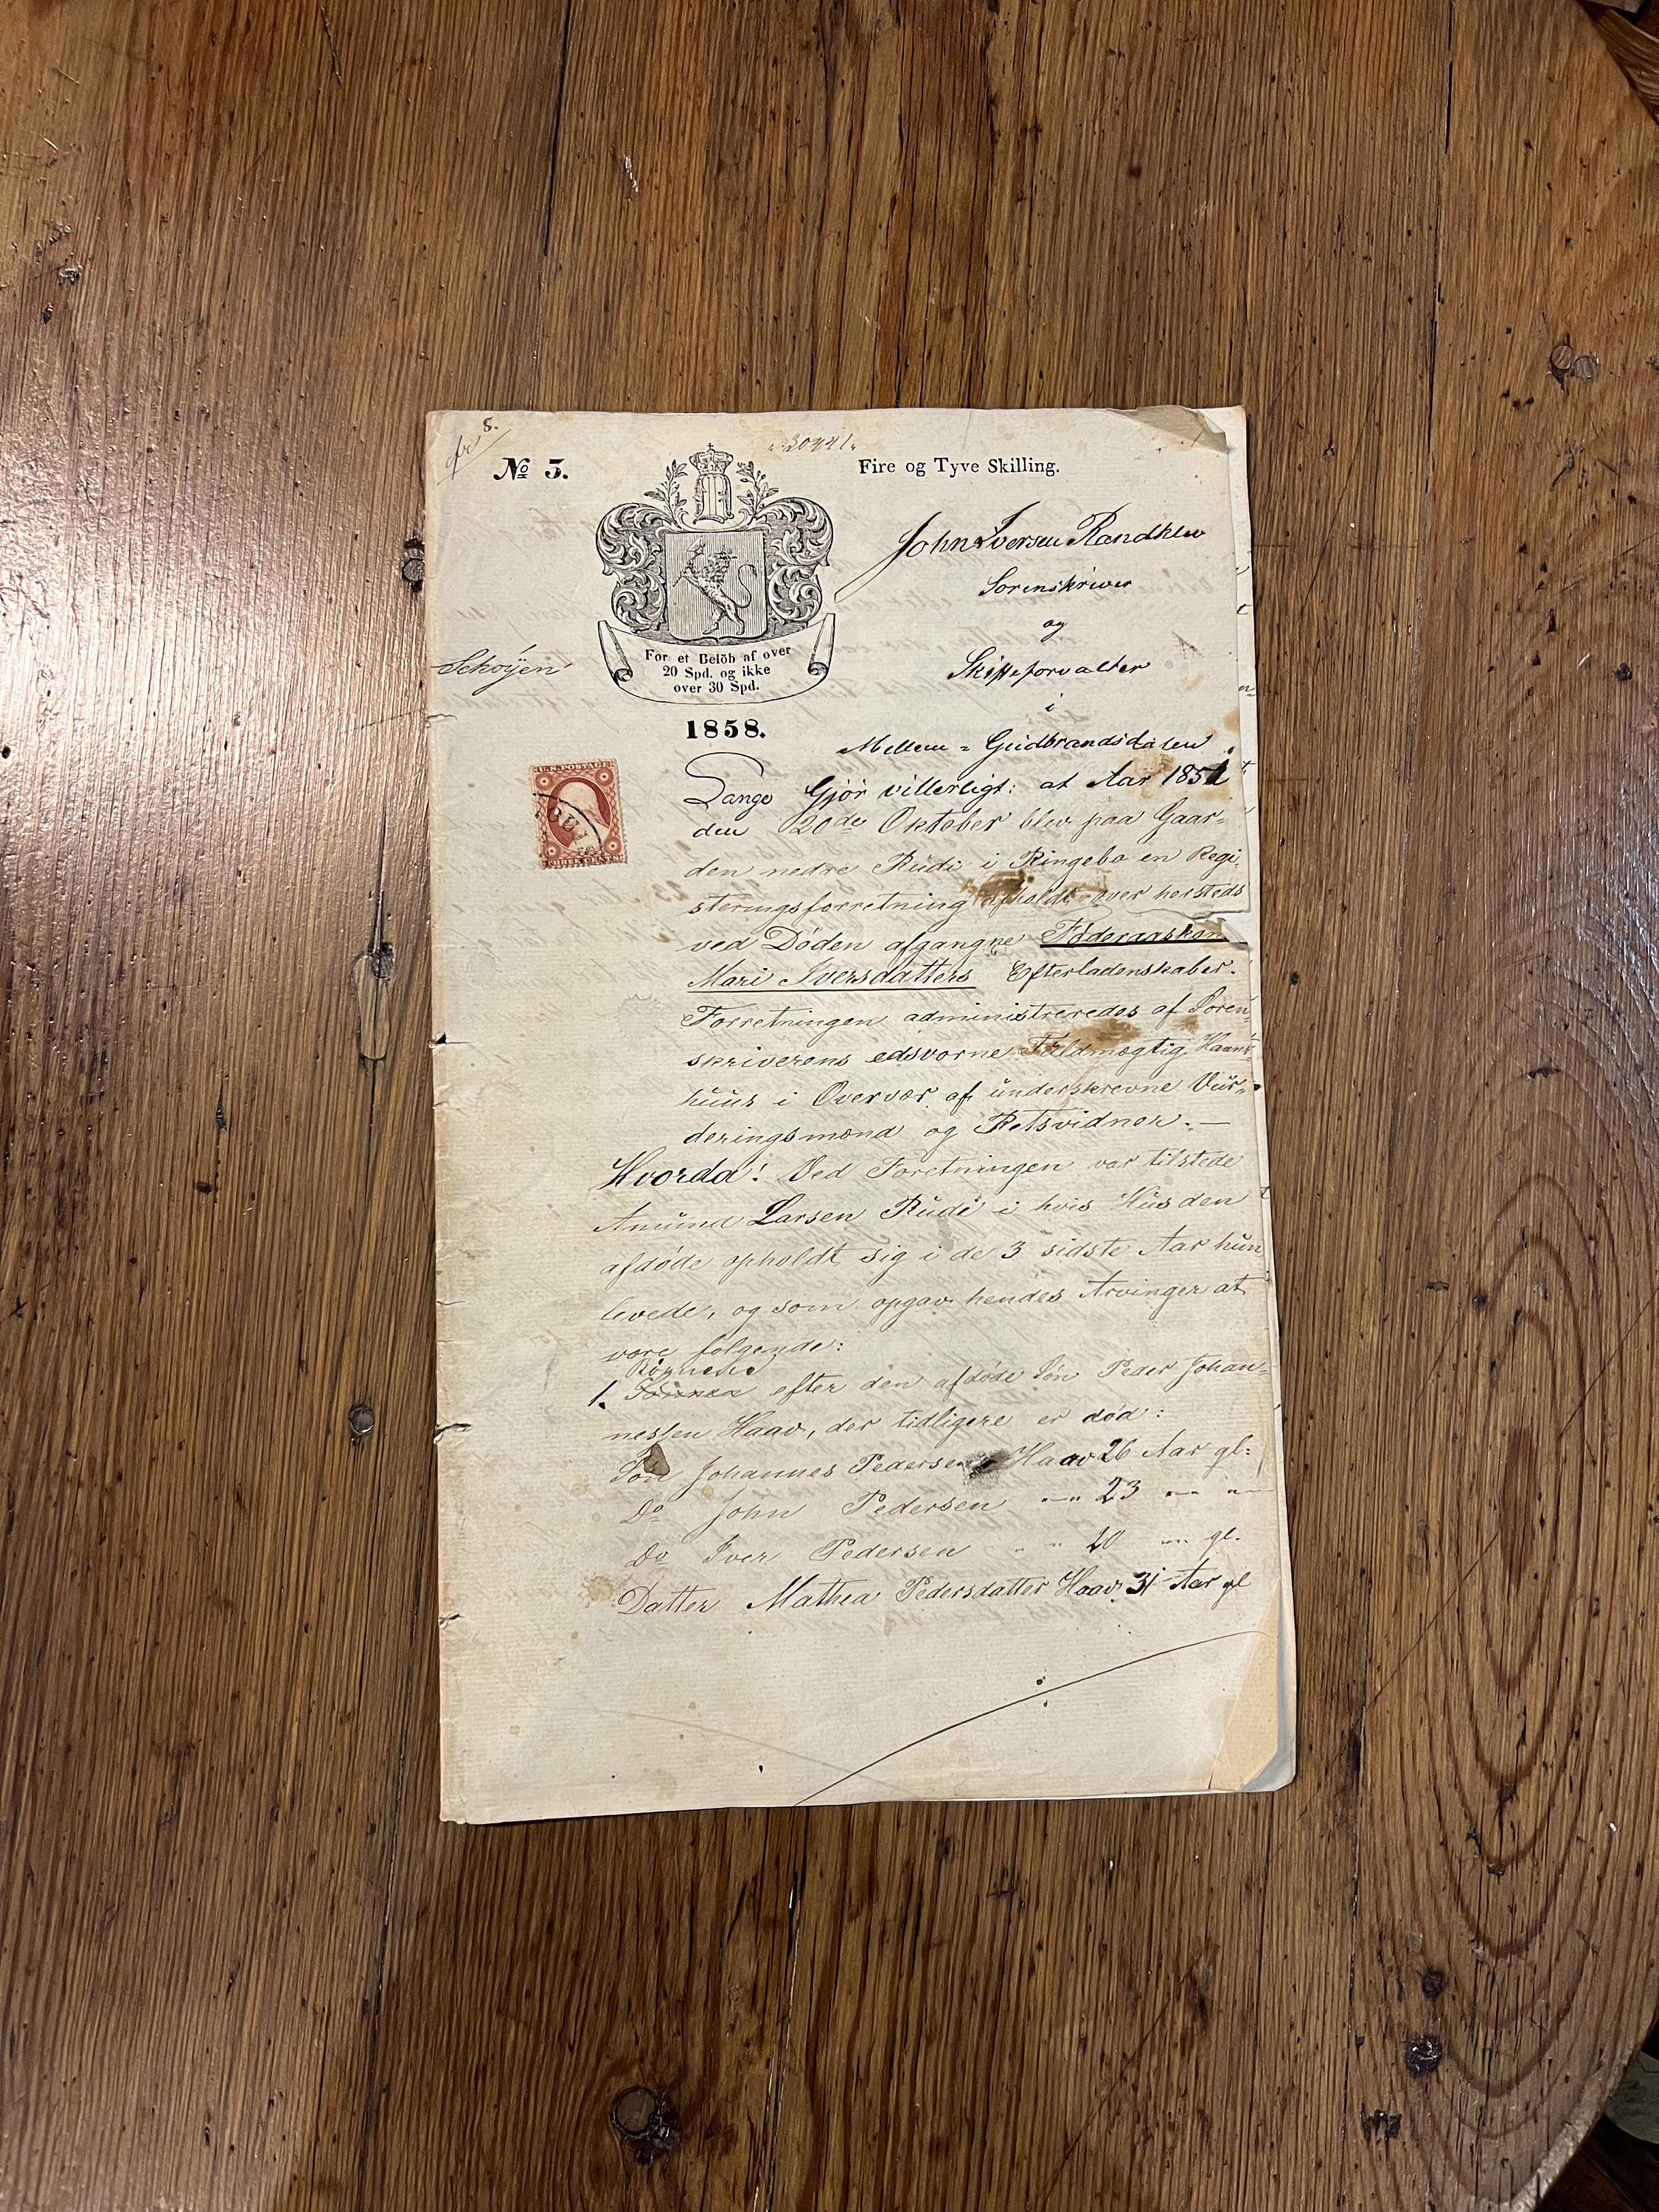 8.
№ 5.
"30441"
Fire og Tyve Skilling.
John Iversen Randklev
Sorenskriver
og
Skifteforvalter
i
Mellem = Gudbrandsdalen
Schøyen
For et Belöb af over
20 Spd. og ikke
over 30 Spd.
1858.
U.S. POSTAGE
THREE CENTS
Gjör vitterligt: at Aar 1851
den 20de Oktober blev paa Gaar-
den nedre Rudi i Ringebo en Regi-
steringsforretning afholdt over hersteds
ved Döden afgangne Föderaadskone
Mari Iversdatters Efterladenskaber.
Forretningen administreredes af Soren-
skriverens edsvorne Fuldmægtig
huus i Overvær af underskrevne Vur-
deringsmænd og Retsvidner. —
Hvorda! Ved Forretningen var tilstede
Amund Larsen Rudi i hvis Hus den
afdöde opholdt sig i de 3 sidste Aar hun
levede, og som opgav hendes Arvinger at
være fölgende:
1. efter den afdöde Sön Peder Johan-
nessen Haav, der tidligere er död:
Sön Johannes Pedersen Haav 26 Aar gl:
Do John Pedersen " 23 " "
Do Iver Pedersen " " 20 " gl.
Datter Mathea Pedersdatter Haav 31 Aar gl